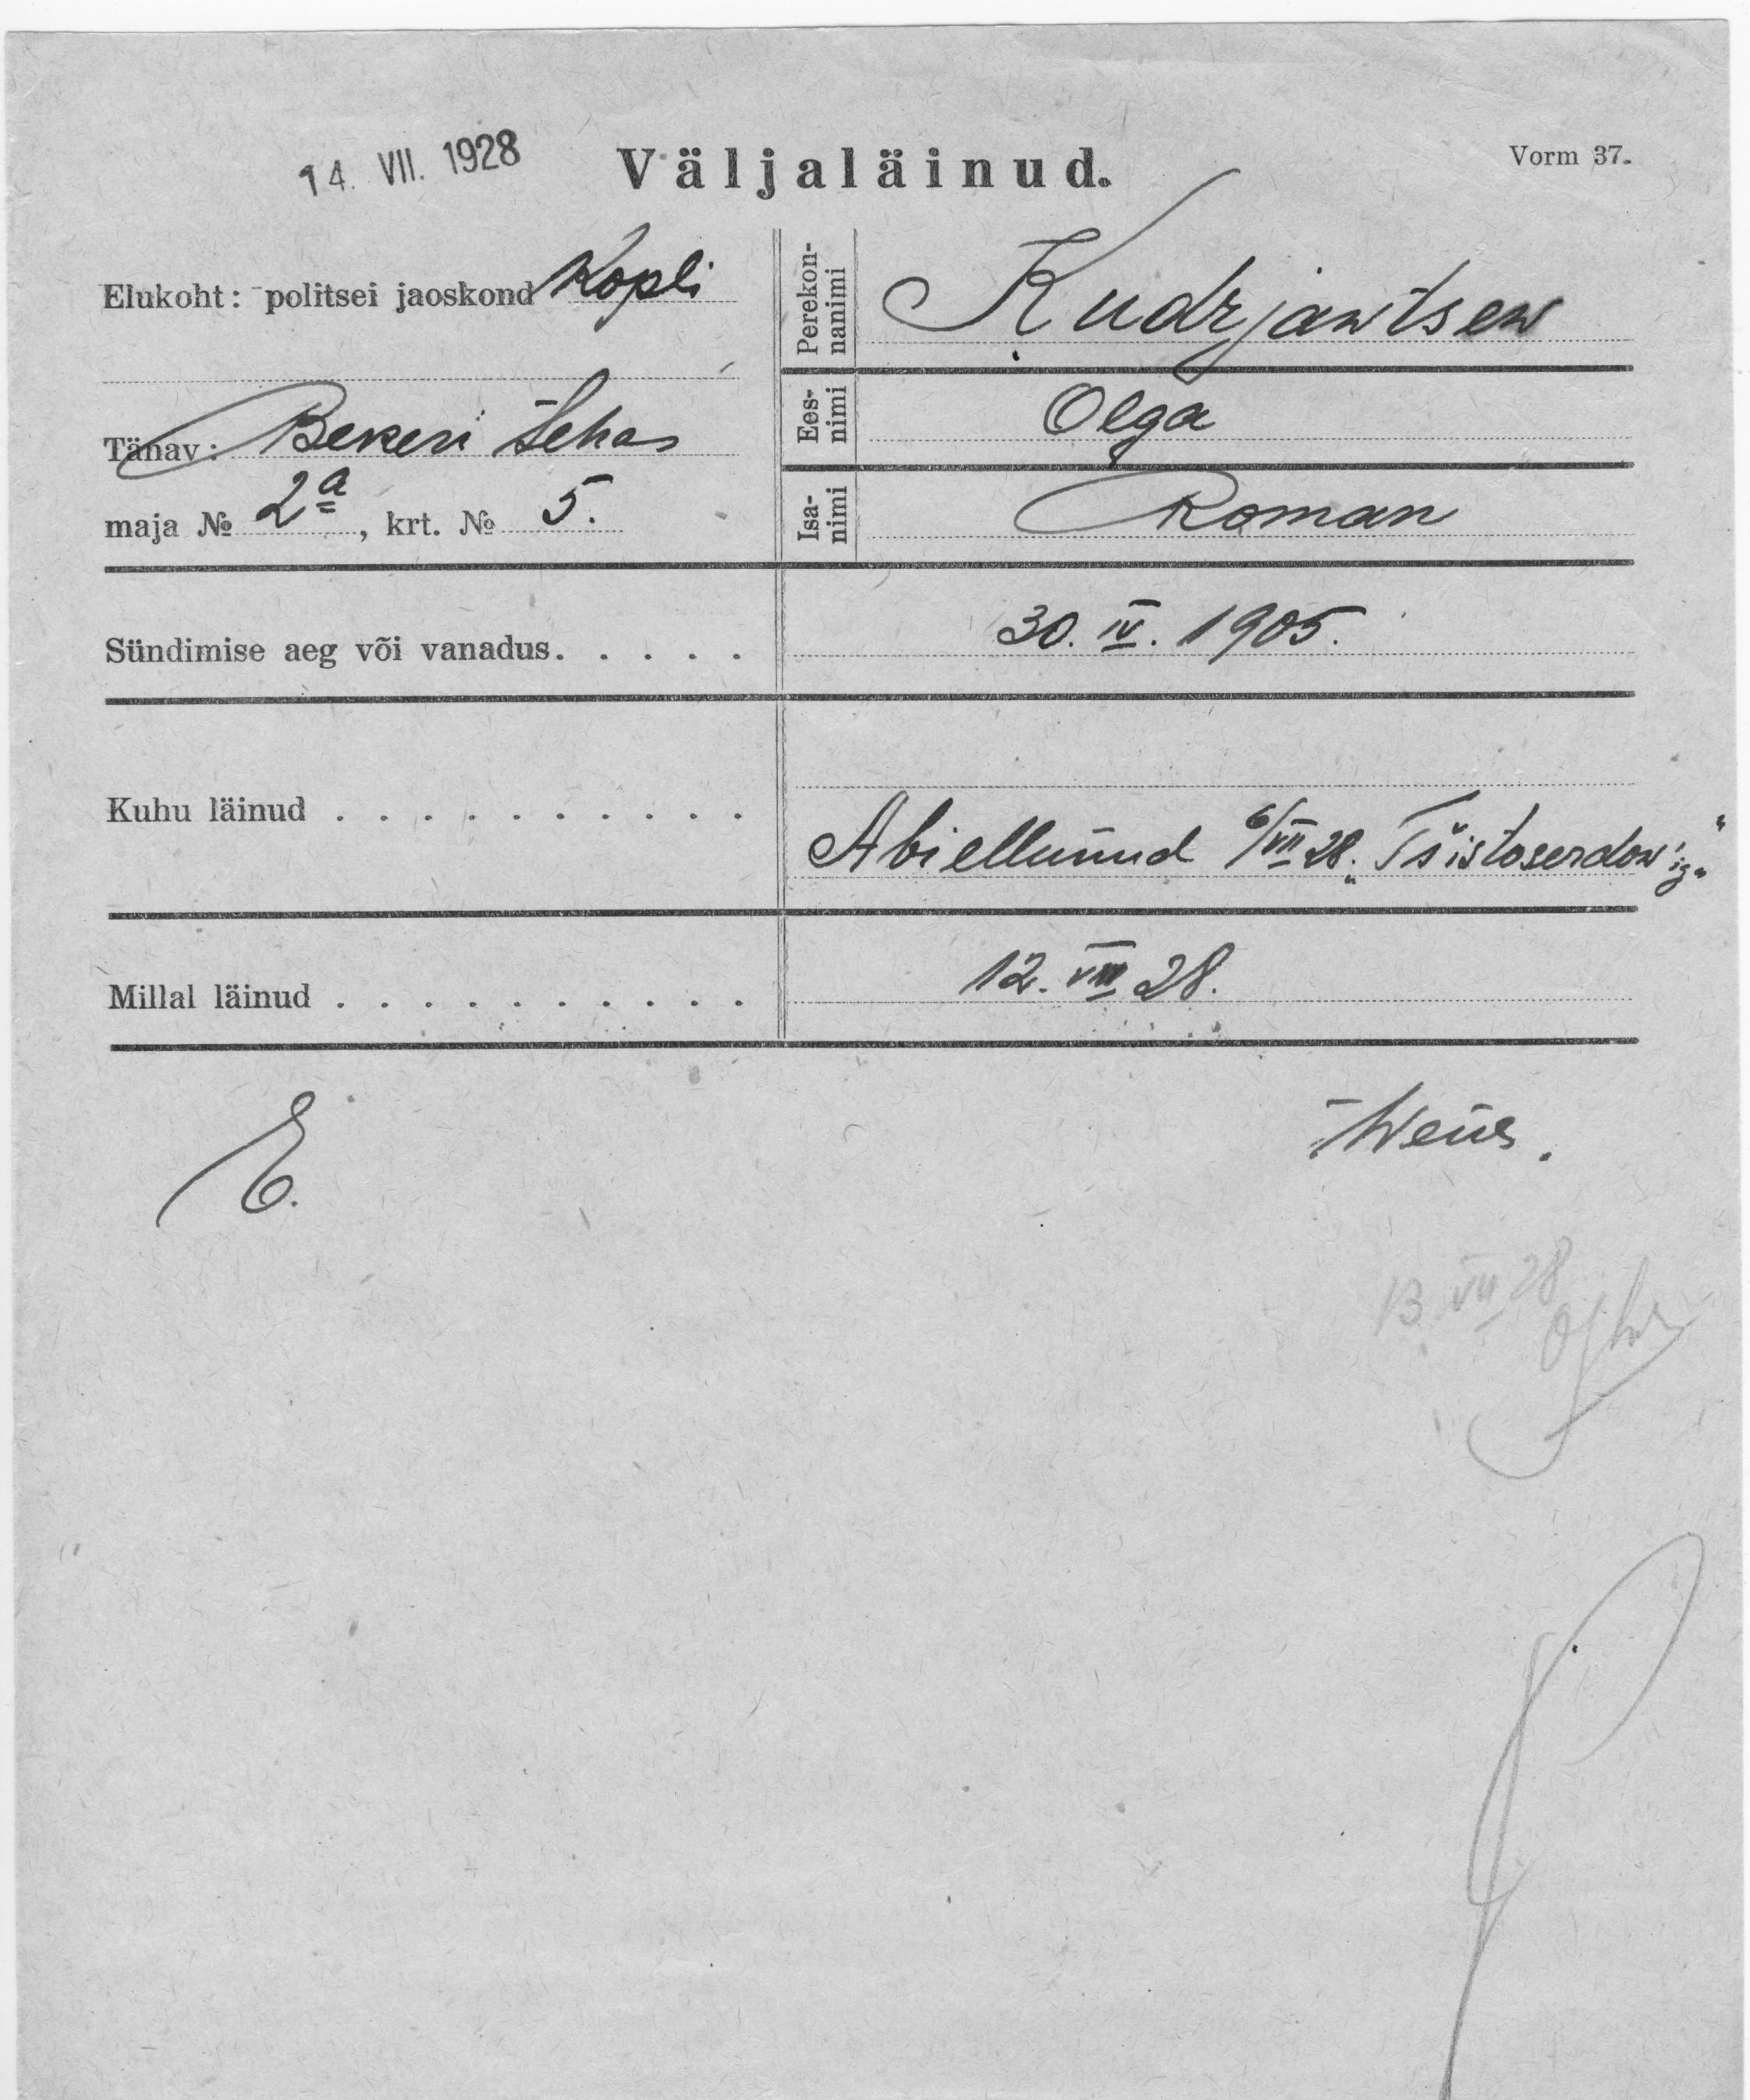 14. VII. 1928
Väljaläinud.
Vorm 37.
Elukoht: politsei jaoskond Kopli
Tänav: Bekeri tehas
maja № 2a, krt. № 5.
Perekon-
nanimi
Kudrjawtsew
Ees-
nimi
Olga
Isa-
nimi
Roman
Sündimise aeg või vanadus. . . . .
30. IV. 1905.
Kuhu läinud . . . . . . . . . .
Abiellunud 6/VII 28. „Tšistoserdow'iga“
Millal läinud . . . . . . . . . .
12. VII 28.
E.
13. VII 28